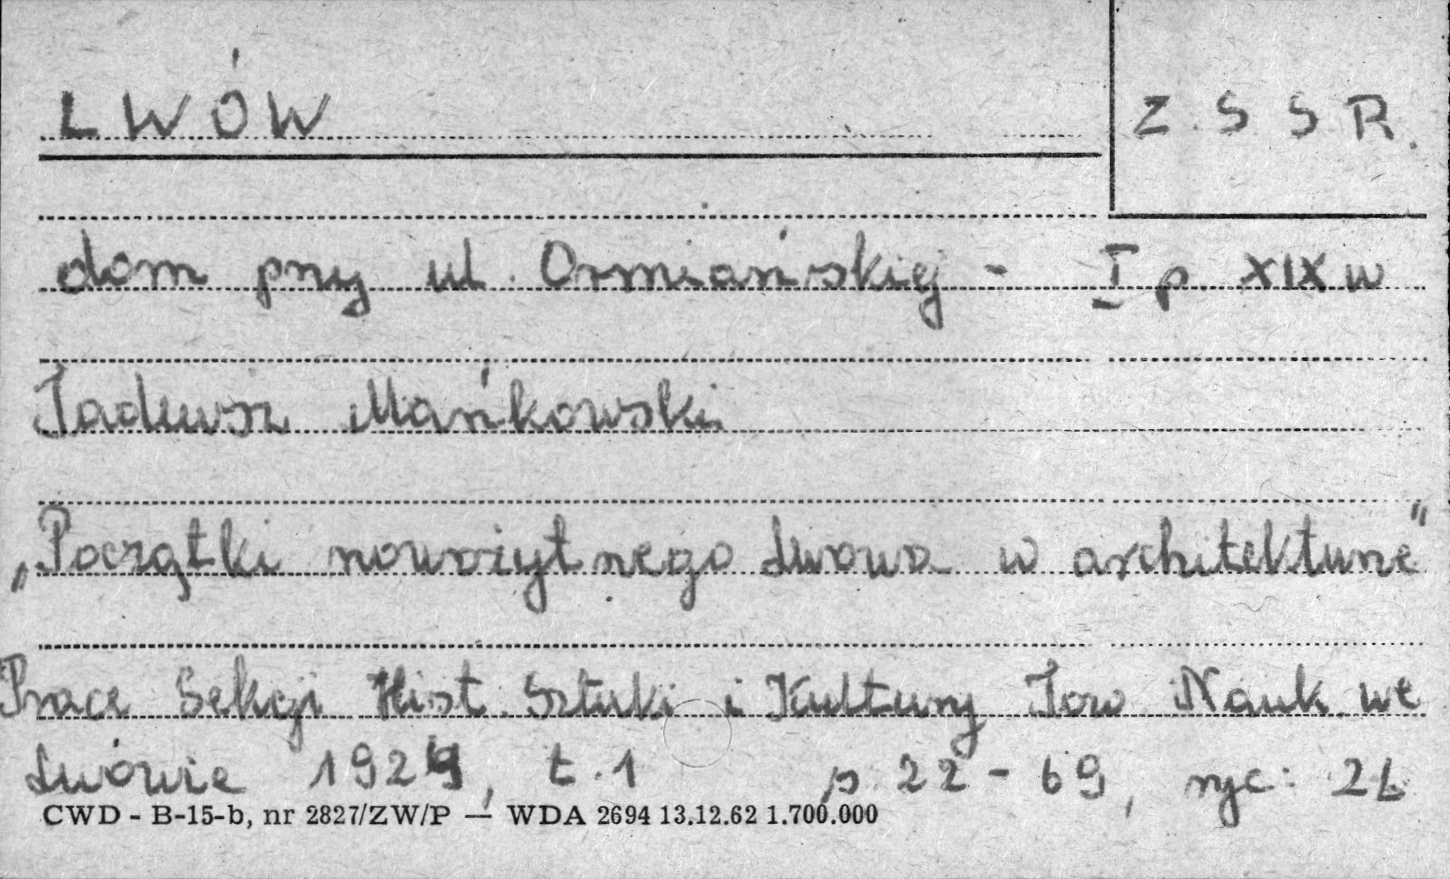 LWÓW
ZSSR.
dom przy ul. Ormiańskiej - I p XIX w
Tadeusz Mańkowski
„Początki nowożytnego Lwowa w architekturze"
Prace Sekcji Hist. Sztuki i Kultury Tow Nauk we
Lwówie 1929, t. 1 p. 22-69, ryc: 26
CWD - B-15-b, nr 2827/ZW/P — WDA 2694 13.12.62 1.700.000